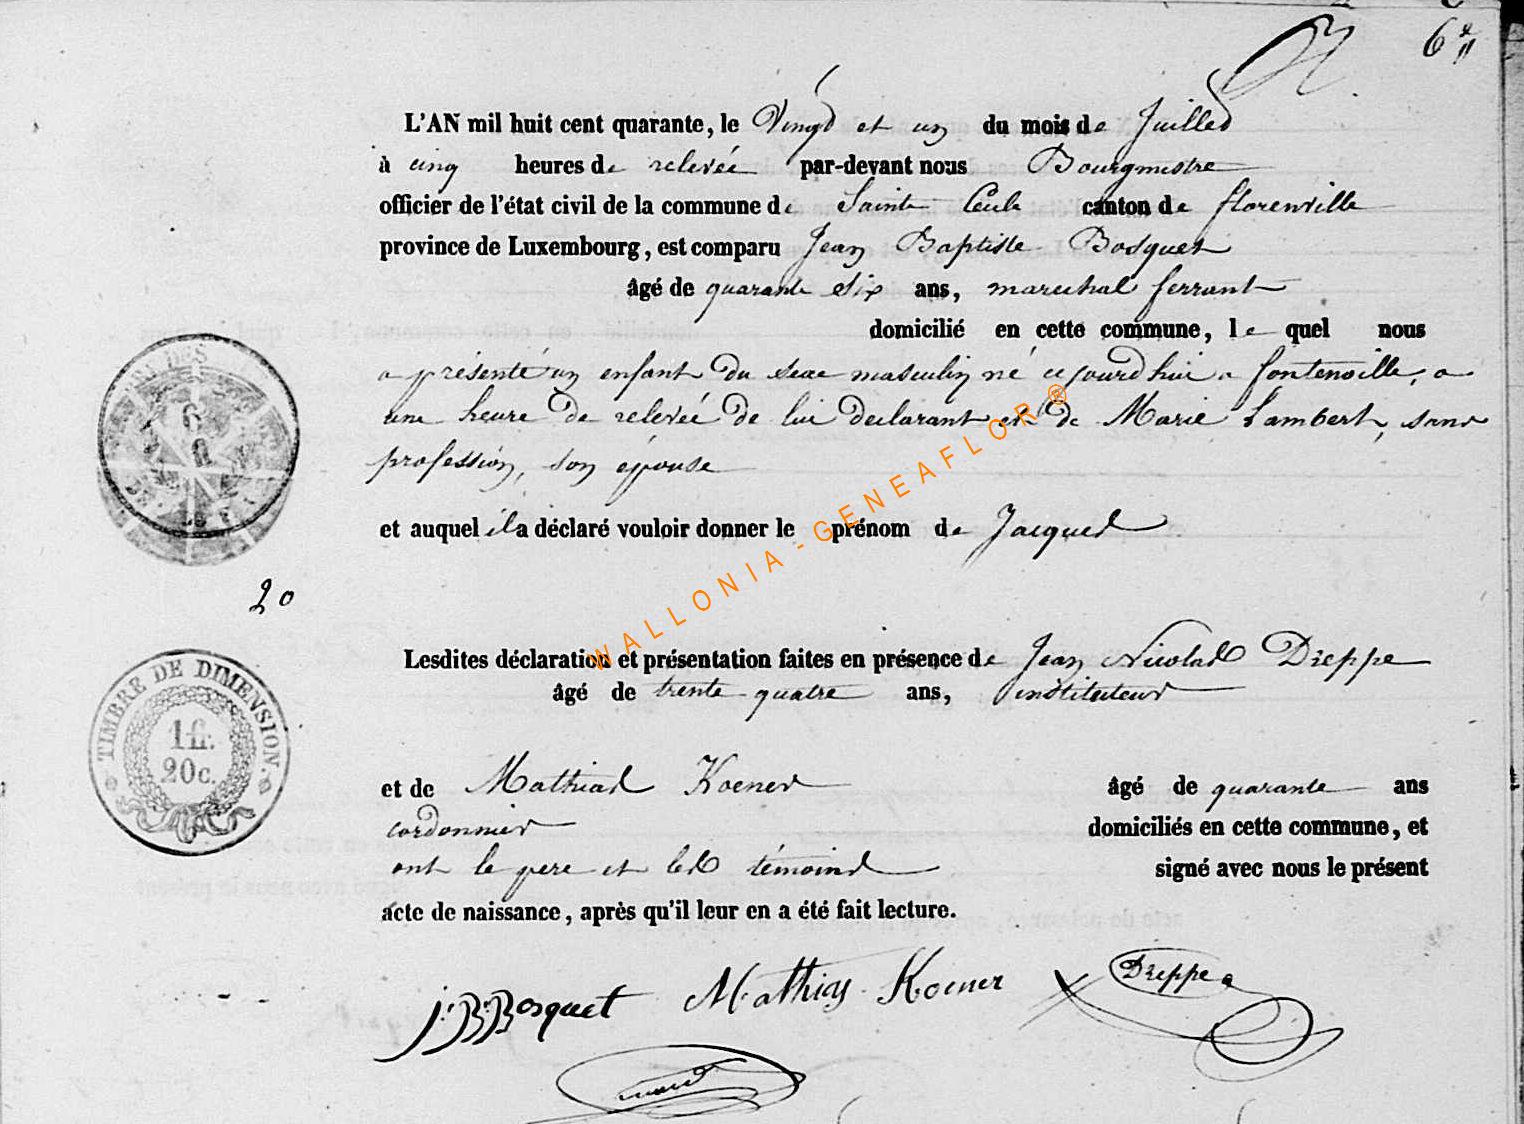 6e
L'AN mil huit cent quarante, le Vingt et un du mois de Juillet
à cinq heures de relevée par-devant nous Bourgmestre
officier de l'état civil de la commune de Sainte Cécile canton de florenville
province de Luxembourg, est comparu Jean Baptiste Bosquet
âgé de quarante six ans, marechal ferrant
domicilié en cette commune, le quel nous
a présenté un enfant du sexe masculin né cejourd'hui a fontenoille, a
une heure de relevée de lui declarant et de Marie Lambert, sans
profession, son épouse
et auquel il a déclaré vouloir donner le prénom de Jacques
20
Lesdites déclaration et présentation faites en présence de Jean Nicolas Dreppe
âgé de trente quatre ans, instituteur
et de Mathias Koener âgé de quarante ans
cordonnier domiciliés en cette commune, et
ont le pere et les témoins signé avec nous le présent
acte de naissance, après qu'il leur en a été fait lecture.
J. B. Bosquet Mathias Koener Dreppe
TIMBRE DE DIMENSION.
1 fr.
20 c.
WALLONIA - GENEAFLOR ®